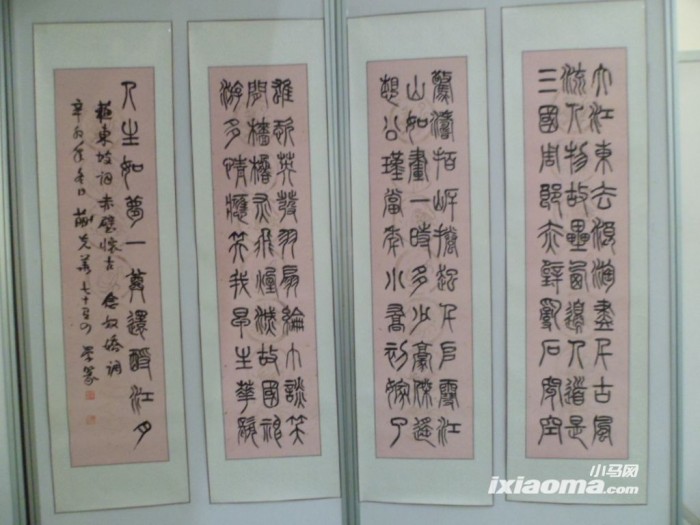 大江東去浪淘盡千古風
流人物故壘西邊人道是
三國周郎赤壁亂石穿空
驚濤拍岸捲起千堆雪江
山如畫一時多少豪傑遙
想公瑾當年小喬初嫁了
雄姿英發羽扇綸巾談笑
間檣櫓灰飛煙滅故國神
游多情應笑我早生華髮
人生如夢一尊還酹江月
蘇東坡词赤壁懷古 念奴嬌词
辛卯年冬日 七十有四 學篆
小马网
ixiaoma.com